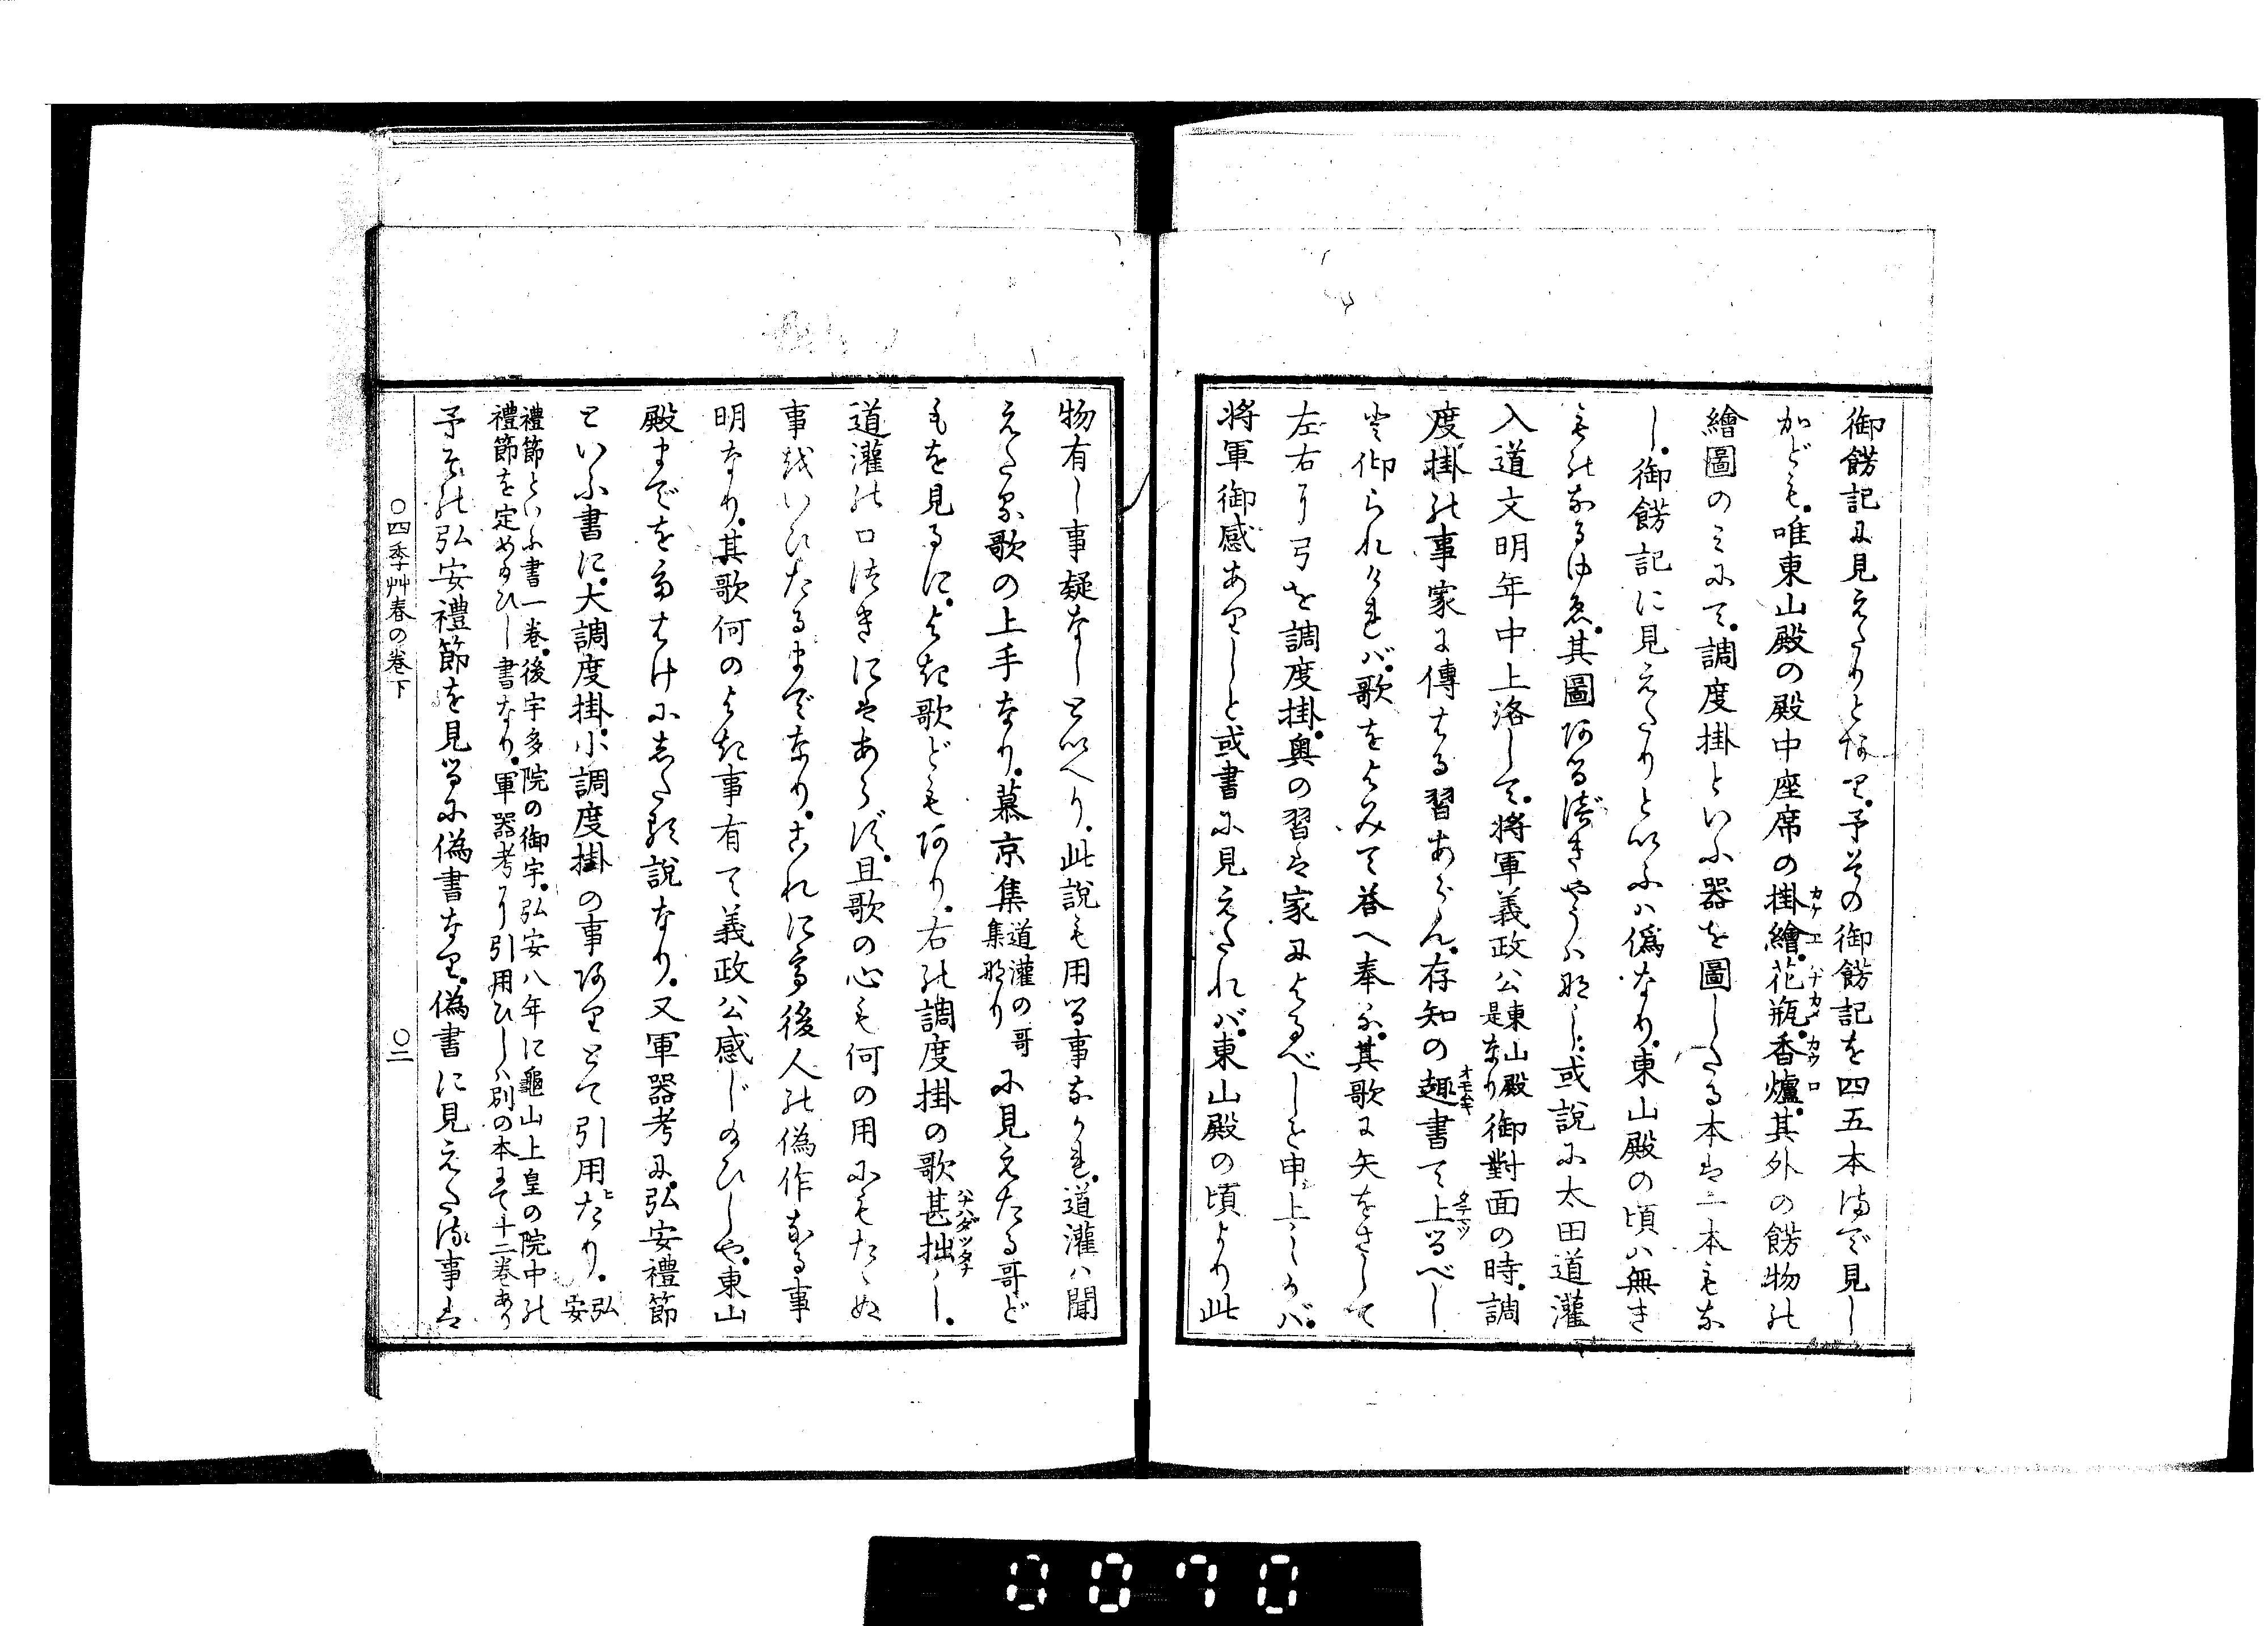 御餝記に見えたりとあり。予其の御餝記を四五本まで見し
かども。唯東山殿の殿中座席の掛繪。花瓶。香爐。其外の餝物の
繪圖のミにて。調度掛といふ器を圖したる本は一本も無
し。御餝記に見えたりといふハ僞なり。東山殿の頃ハ無き
ものなるゆゑ。其圖あるべきやうハなし。或説に太田道灌
入道文明年中上洛して。將軍義政公東山殿是なり御對面の時。調
度掛の事家に傳はる習あらん。存知の趣書て上るべし
と仰られければ。歌をよみて答へ奉る。其歌に矢をさして
左右に弓を調度掛。奥の習は家によるべしと申上しかバ。
將軍御感ありしと或書に見えたれバ。東山殿の頃より此
物有し事疑なしといへり。此説も用る事なかれ。道灌ハ聞
えたる歌の上手なり。慕京集道灌の哥集なりに見えたる哥ど
もを見るに。よき歌どもあり。右の調度掛の歌甚拙し。
道灌の口つきにはあらず。且歌の心も何の用にもたゝぬ
事をいひたるまでなり。これにて後人の僞作なる事
明なり。其歌何のよき事有て義政公感じ給ひしや。東山
殿までをあざけにした説なり。又軍器考に。弘安禮節
といふ書に。大調度掛。小調度掛の事ありとて引用たり。弘安
禮節といふ書一巻。後宇多院の御宇。弘安八年に龜山上皇の院中の
禮節を定め給ひし書なり。軍器考に引用ひしハ別の本にて十二巻あり
予その弘安禮節を見るに偽書なり。偽書に見えたる事は
○四季艸春の巻下
○二
0070